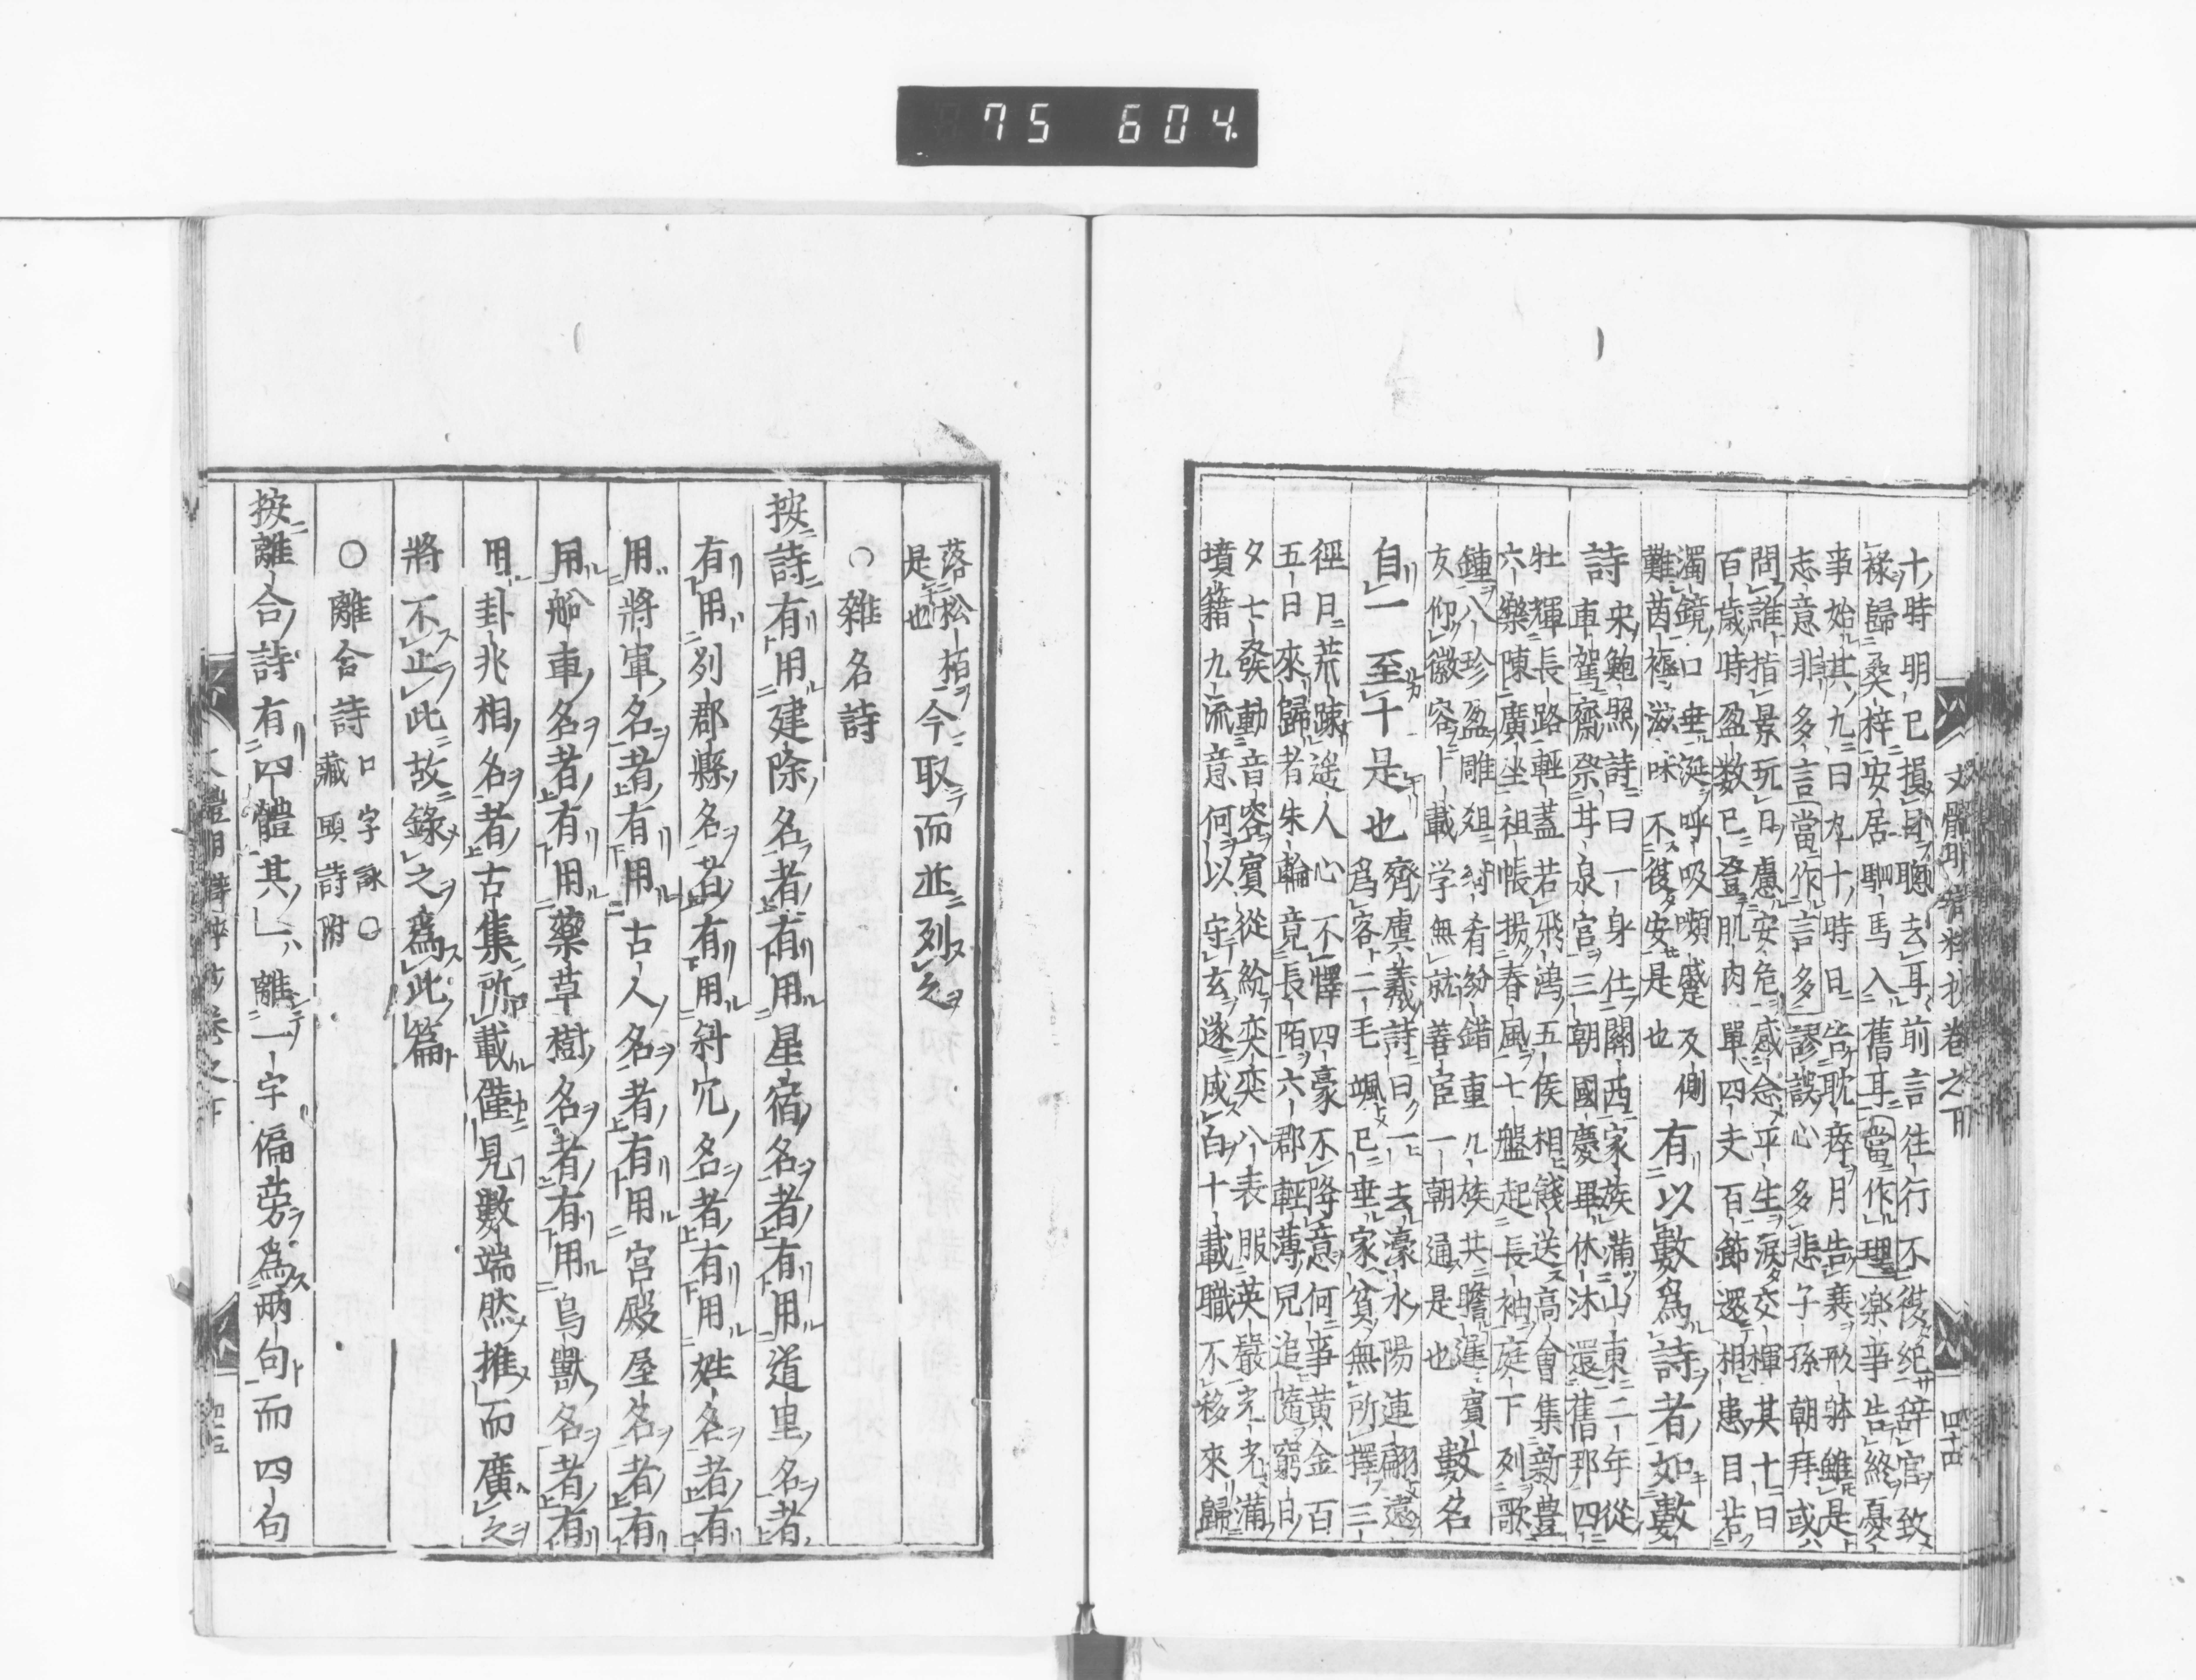 75 604
文體明辯粹抄卷之下 四十四
十時明已損目聰去耳前言往行不復紀辭官致
祿歸桑梓安居駟馬入舊耳當作理樂事告終憂
事始其九曰九十時日告耽瘁月告衰形躰雖是
志意非多言當作言多謬誤心多悲子孫朝拜或
問誰指景玩日慮安危感念平生淚交揮其十曰
百歲時盈數已登肌肉單四支百節還相患目若
濁鏡口垂涎呼吸嚬蹙反側
難茵褥滋味不復安是也
有以數爲詩者如數
詩
宋鮑照詩曰一身仕關西家族滿山東二年從
車駕齋祭甘泉宮三朝國慶畢休沐還舊邦四
牡輝長路輕蓋若飛鴻五侯相餞送高會集新豐
六樂陳廣坐祖帳揚春風七盤起長袖庭下列歌
鍾八珍盈雕俎綺肴紛錯重九族共瞻遲賓
友仰徽容十載学無就善宦一朝通是也
數名
自一至十是也
齊虞羲詩曰一去濠水陽連翩遠
爲客二毛颯已垂家貧無所擇三
徑日荒踈遥人心不懌四豪不降意何事黃金百
五日來歸者朱輪竟長陌六郡輕薄兒追隨窮日
夕七發動音容賓從紛奕奕八表服英嚴光光滿
墳籍九流意何以守玄遂成白十載職不移來歸
落松栢今取而並列之
是也
○雜名詩
按詩有用建除名者有用星宿名者有用道里名者
有用列郡縣名者有用斜冗名者有用姓名者有
用將軍名者有用古人名者有用宮殿屋名者有
用船車名者有用藥草樹名者有用鳥獸名者有
用卦兆相名者古集所載僅見數端然推而廣之
將不止此故錄之爲此篇
○離合詩
口字詠○
藏頭詩附
按離合詩有四體其一離一字偏旁爲兩句而四句